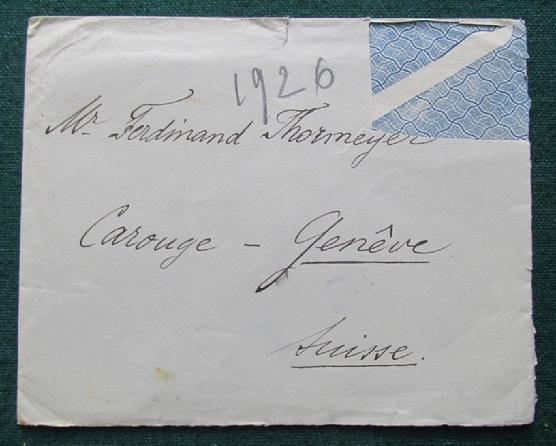 1926
Mr Ferdinand Thormeyer
Carouge – Genève
Suisse.